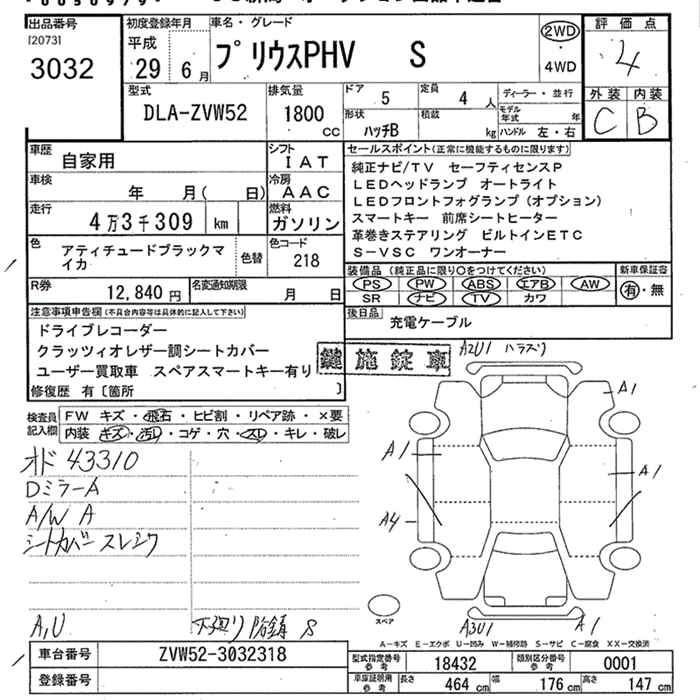 出品番号
[2073]
3032
初度登録年月
平成
29年 6月
車名・グレード
プリウスPHV S
2WD
・
4WD
評価点
4
外装 内装
C B
型式
DLA-ZVW52
排気量
1800
CC
ドア
5
定員
4 人
形状
ハッチB
積載
kg
ディーラー・並行
モデル年式 年
ハンドル 左・右
車歴
自家用
シフト
IAT
車検
年 月( 日)
冷房
AAC
走行
4万3千309 km
燃料
ガソリン
色
アティチュードブラックマイカ
色替
色コード
218
R券
12,840 円
名変通知期限
月 日
セールスポイント(正常に機能するものに限ります)
純正ナビ/TV セーフティセンスP
LEDヘッドランプ オートライト
LEDフロントフォグランプ(オプション)
スマートキー 前席シートヒーター
革巻きステアリング ビルトインETC
S-VSC ワンオーナー
装備品(純正品に限り○をつけてください)
PS PW ABS エアB AW
SR ナビ TV カワ
新車保証書
有・無
後日品
充電ケーブル
注意事項申告欄(不具合内容等は具体的に記入して下さい)
ドライブレコーダー
クラッツィオレザー調シートカバー
ユーザー買取車 スペアスマートキー有り
修復歴 有[箇所 ]
鍵施錠車
検査員記入欄
FW キズ・飛石・ヒビ割・リペア跡・×要
内装 キズ・汚レ・コゲ・穴・スレ・キレ・破レ
オド 43310
Dミラー A
A/W A
シートカバー スレ シワ
A,U
下廻り 防錆 S
A2U1
A1
A1
A1
A4
A3U1
A1
スペア
A-キズ E-エクボ U-凹み W-補修跡 S-サビ C-腐食 XX-交換済
車台番号
ZVW52-3032318
登録番号
型式指定番号 参考
18432
類別区分番号 参考
0001
車庫証明用 参考
長さ 464 cm
幅 176 cm
高さ 147 cm